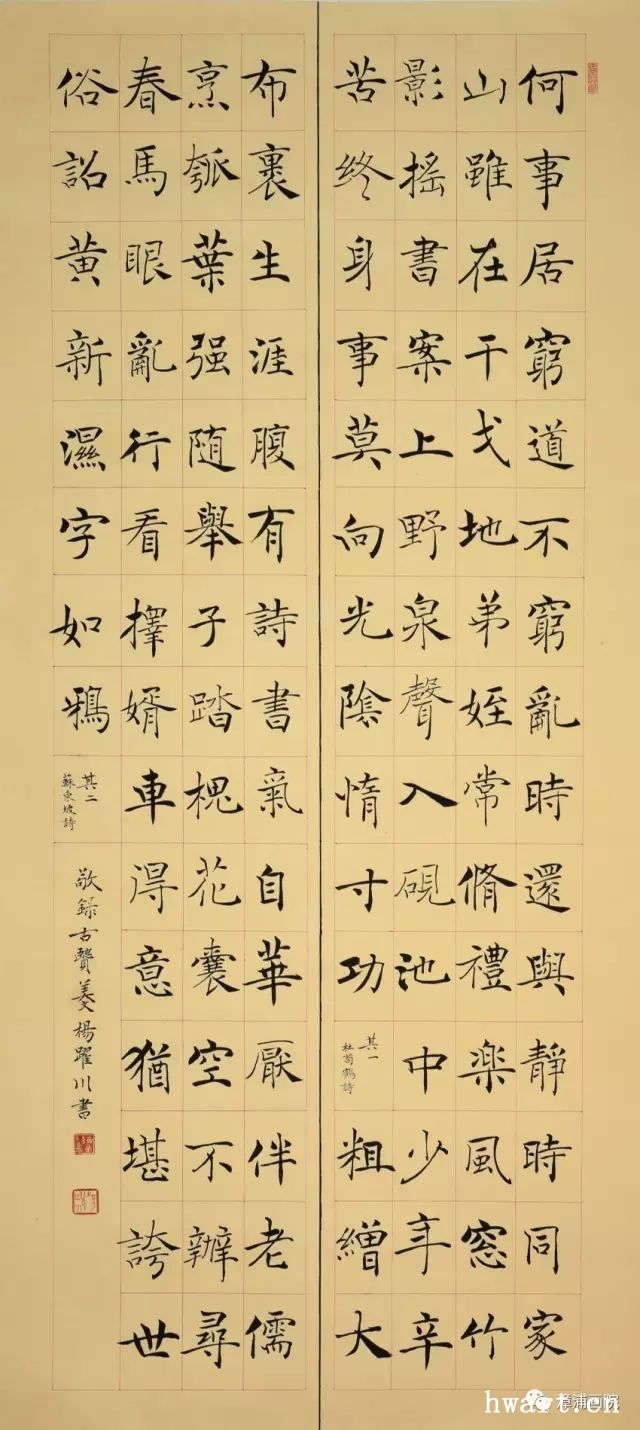 何事居窮道不窮亂時還與靜時同家
山雖在干戈地弟姪常脩禮楽風窓竹
影搖書案上野泉聲入硯池中少年辛
苦终身事莫向光陰惰寸功
其一
杜荀鶴詩
粗繒大
布裹生涯腹有詩書氣自華厭伴老儒
烹瓠葉强随舉子踏槐花囊空不辦尋
春馬眼亂行看擇婿車得意猶堪誇世
俗詔黄新濕字如鴉
其二
蘇東坡詩
敬録古賢羙楊躍川書
hwart.cn
漳浦画院